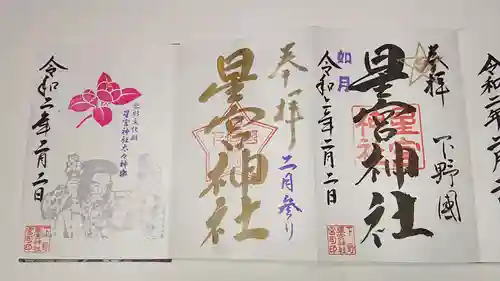 奉拝
下野國
星宮神社
如月
令和二年二月二日
奉拝
二月参り
星宮神社
星宮神社太々神楽
令和二年二月二日